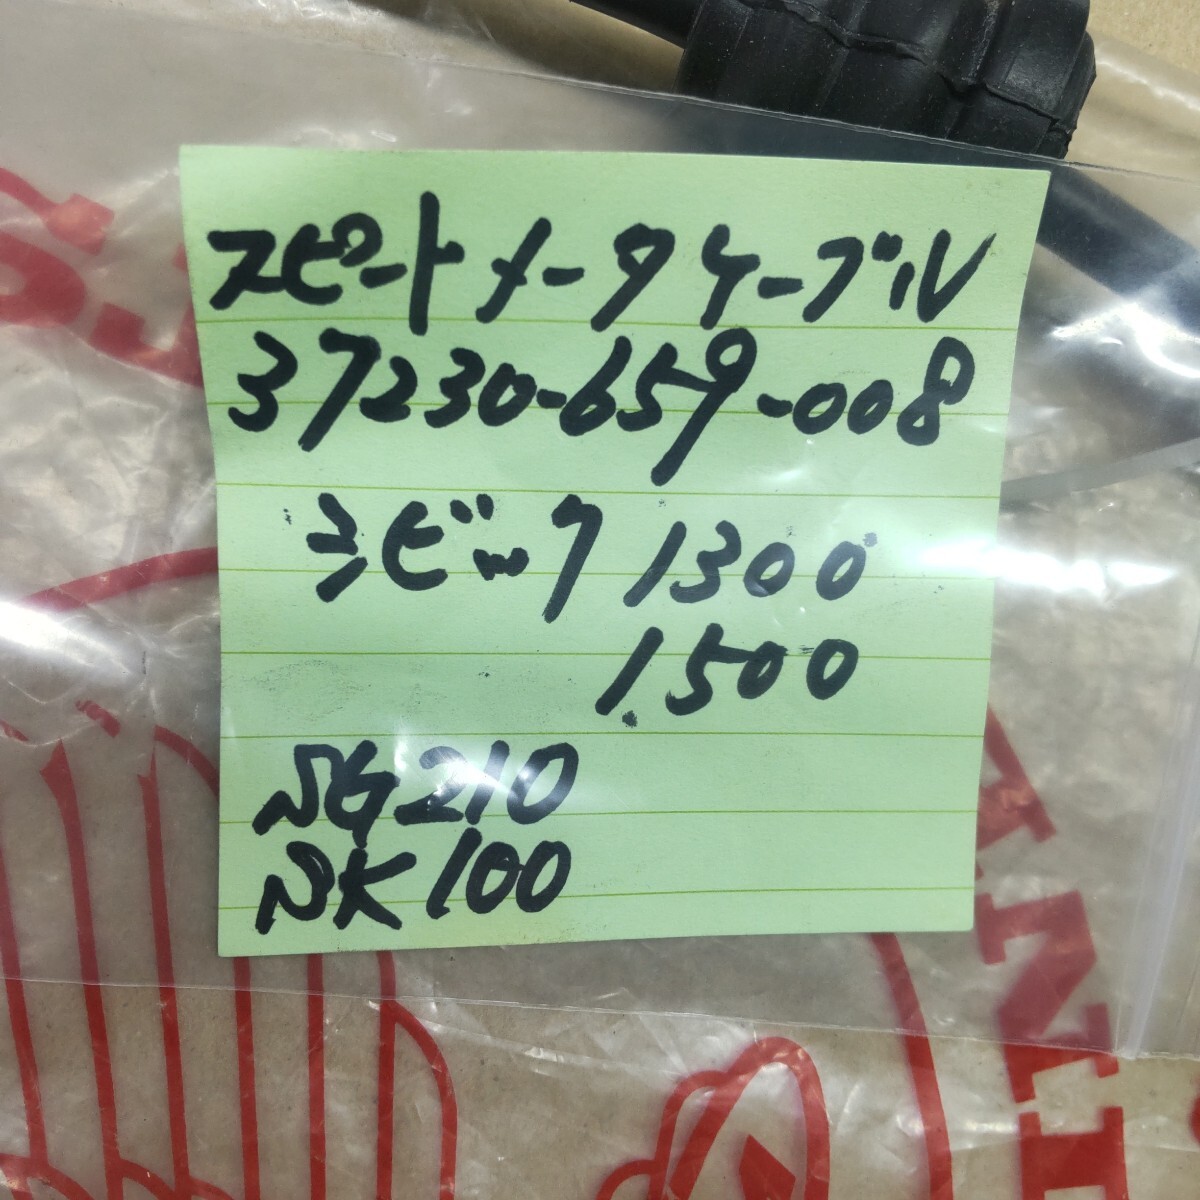 スピートメータケーブル
37230-659-008
シビック 1300
1500
SG210
SK100